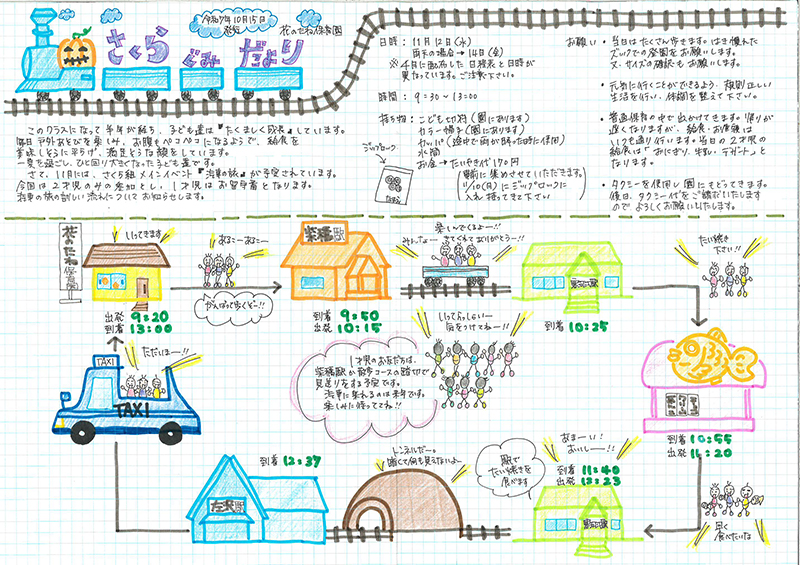 さくらぐみだより
令和7年10月15日
発行
花のたね保育園
このクラスになって半年が経ち、子ども達は『たくましく成長』しています。
毎日戸外あそびを楽しみ、お腹をペコペコになるまで、給食を
美味しそうに平らげ、満足そうな顔をしています。
一夏を過ごし、ひと回り大きくなった子ども達です。
さて、11月には、さくら組メインイベント『汽車の旅』が予定されています。
今回は2才児のみの参加とし、1才児はお留守番となります。
汽車の旅の詳しい流れについてお知らせします。
日時：11月12日(水)
雨天の場合→14日(金)
※4月に配布した日程表と日時が
異なっています。ご注意下さい。
時間：9:30～13:00
持ち物：こども切符(園にあります)
カラー帽子(園にあります)
カッパ(途中で雨が降った時に使用)
水筒
お金→たいやき代170円
事前に集めさせていただきます。
11/10(月)にジップロックに
入れ持ってきて下さい
ジップロック
お願い・当日はたくさん歩きます。はき慣れた
ズックでの登園をお願いします。
又、サイズの確認もお願いします。
・元気に行くことができるよう、規則正しい
生活を行い、体調を整えて下さい。
・普通保育の中出かけてきます。帰りが
遅くなりますが、給食・お昼寝は
いつも通り行います。当日の2才児の
給食は「おにぎり、牛乳、デザート」と
なります。
・タクシーを使用し園にもどってきます。
後日、タクシー代をご請求いたします
ので、よろしくお願いいたします。
花のたね保育園
いってきます
あるこーあるこー
がんばって歩くぞー!!
出発 9:20
到着 13:00
柴橋駅
到着 9:50
出発 10:15
楽しんでくるよー!!
みんなー せてくれてありがとうー!!
到着 10:25
たい焼き
下さい!!
到着 10:55
出発 11:20
早く
食べたいな
おまーい!
おいしー!!
到着 11:40
出発 12:23
駅で
たい焼きを
食べます
トンネルだー。
暗くて何も見えないよー
到着 12:37
左沢駅
いってらっしゃーい
気をつけてねー!!
1才児のお友だちは、
柴橋駅か散歩コースの踏切で
見送りをする予定です。
汽車に乗れるのは来年です。
楽しみに待っててね!!
ただいまー!!
TAXI
TAXI